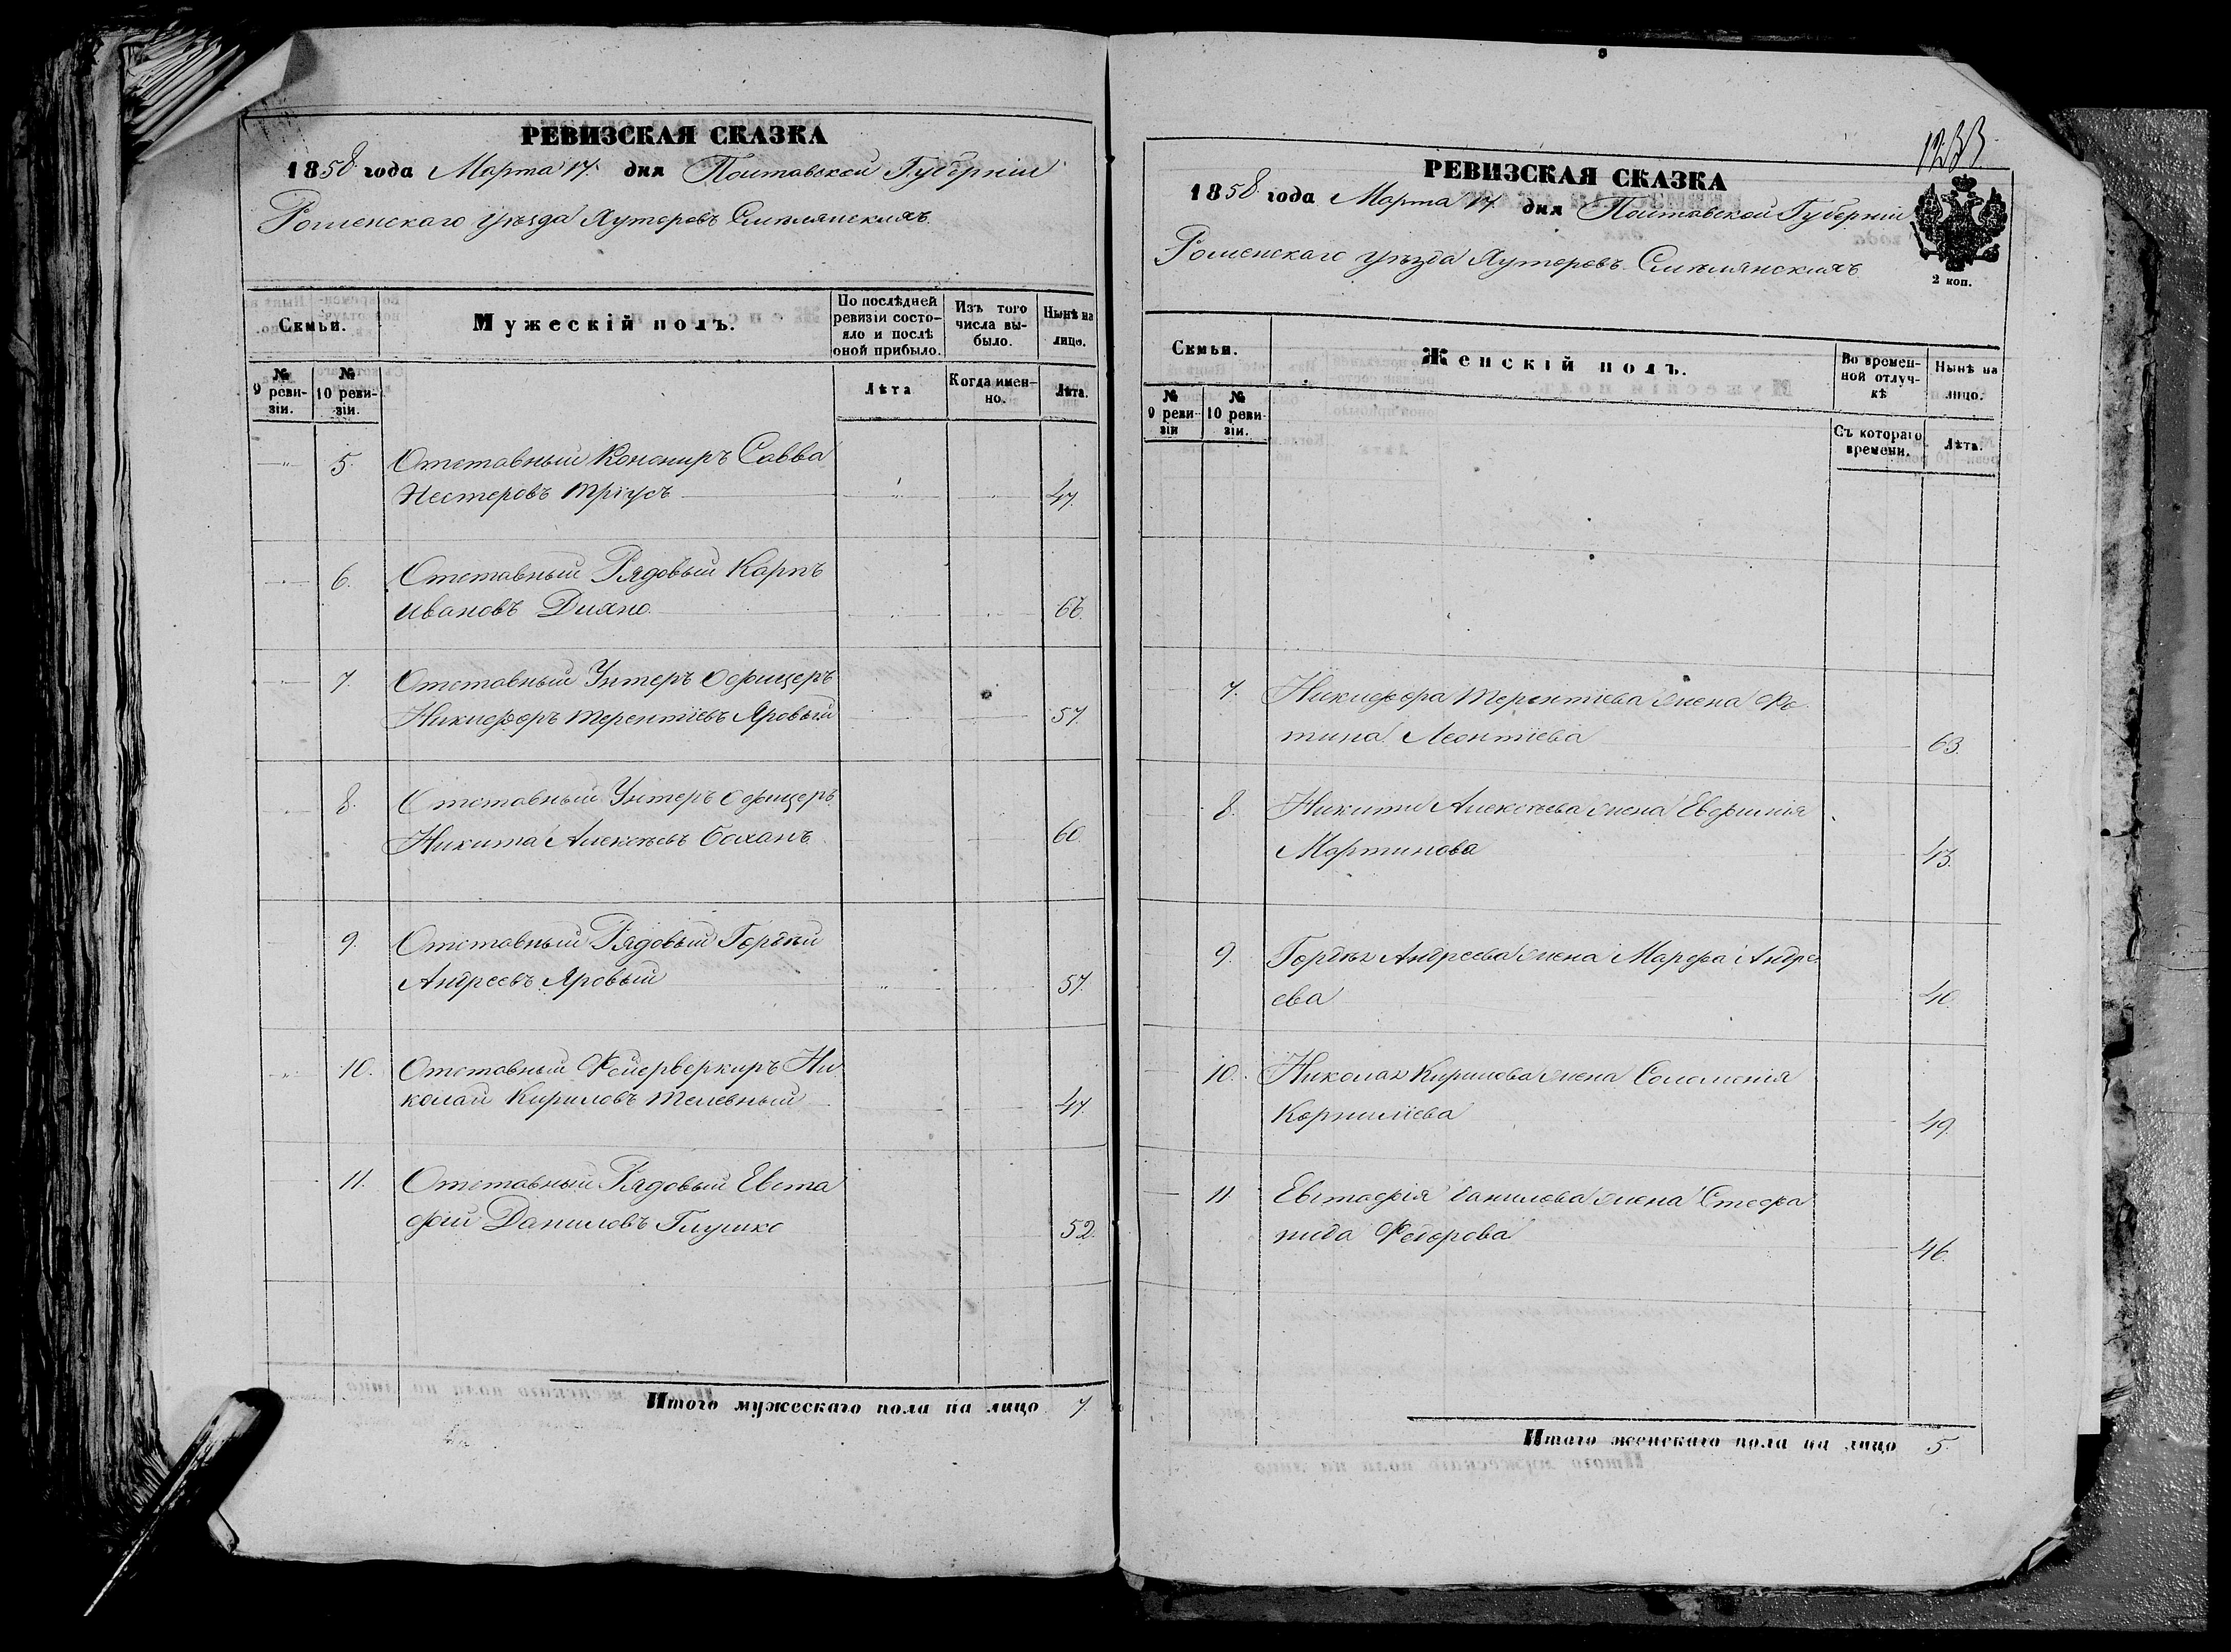 РЕВИЗСКАЯ СКАЗКА
1858 года Марта 17. дня Полтавской Губерніи
Роменскаго уѣзда Хуторовъ Смѣлянскихъ
Семьи.
Мужескій полъ.
По послѣдней ревизіи состояло и послѣ оной прибыло.
Изъ того числа выбыло.
Нынѣ на лицо.
№ 9 ревизіи.
№ 10 ревизіи.
Лѣта
Когда именно.
Лѣта.
5. Отставный Канониръ Савва
Нестеровъ Тріусъ 47.
6. Отставный Рядовый Карпъ
Ивановъ 66.
7. Отставный Унтеръ Офицеръ
Никифоръ Терентіевъ Яровый 57.
8. Отставный Унтеръ Офицеръ
Никита Алексѣевъ 60.
9. Отставный Рядовый Гордѣй
Андреевъ Яровый 57.
10. Отставный Фейерверкиръ Ни
колай Кириловъ 47.
11. Отставный Рядовый Евста
фій Даниловъ Глушко 52.
Итого мужескаго пола на лицо 7.
1233
РЕВИЗСКАЯ СКАЗКА
1858 года Марта 17. дня Полтавской Губерніи
Роменскаго уѣзда Хуторовъ Смѣлянскихъ
2 коп.
Семьи.
Женскій полъ.
Во временной отлучкѣ
Нынѣ на лицо.
№ 9 ревизіи
№ 10 ревизіи.
Съ котораго времени.
Лѣта.
7. Никифора Терентіева жена Фе
тина Леонтіева 63.
8. Никиты Алексѣева жена Евфимія
Мартинова 43.
9. Гордѣя Андреева жена Марфа Андре
ева 40.
10. Николая Кирилова жена Соломонія
Корниліева 49.
11. Евстафія Данилова жена Стефа
нида Федорова 46.
Итого женскаго пола на лицо 5.